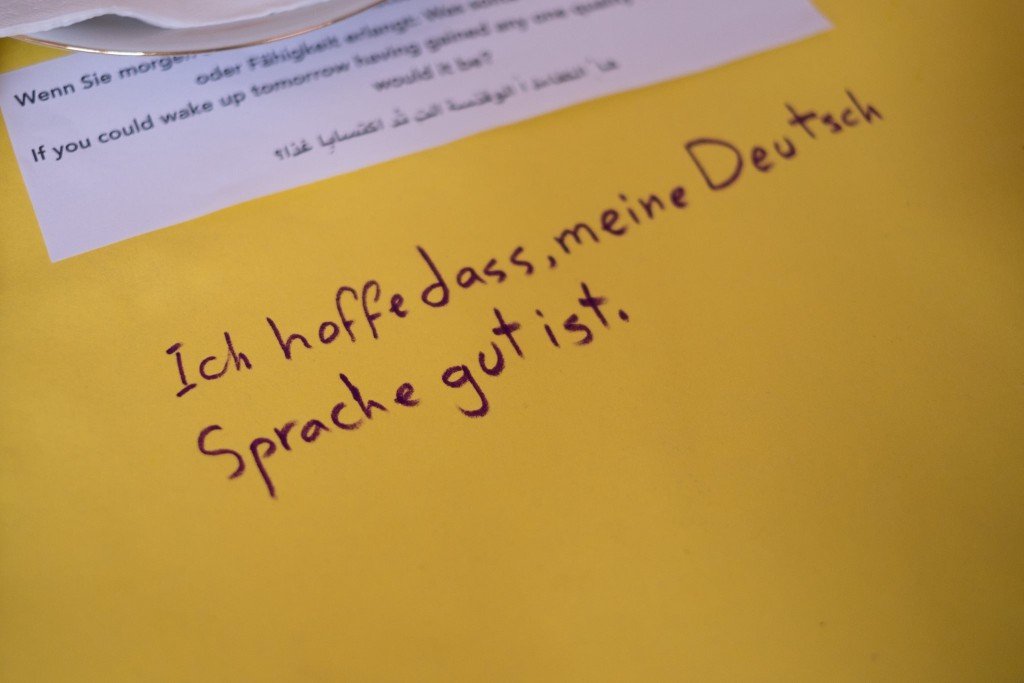 Wenn Sie morgen
oder Fähigkeit erlangt: Was
If you could wake up tomorrow having gained any one quality
would it be?
غدا؟
Ich hoffe dass, meine Deutsch
Sprache gut ist.